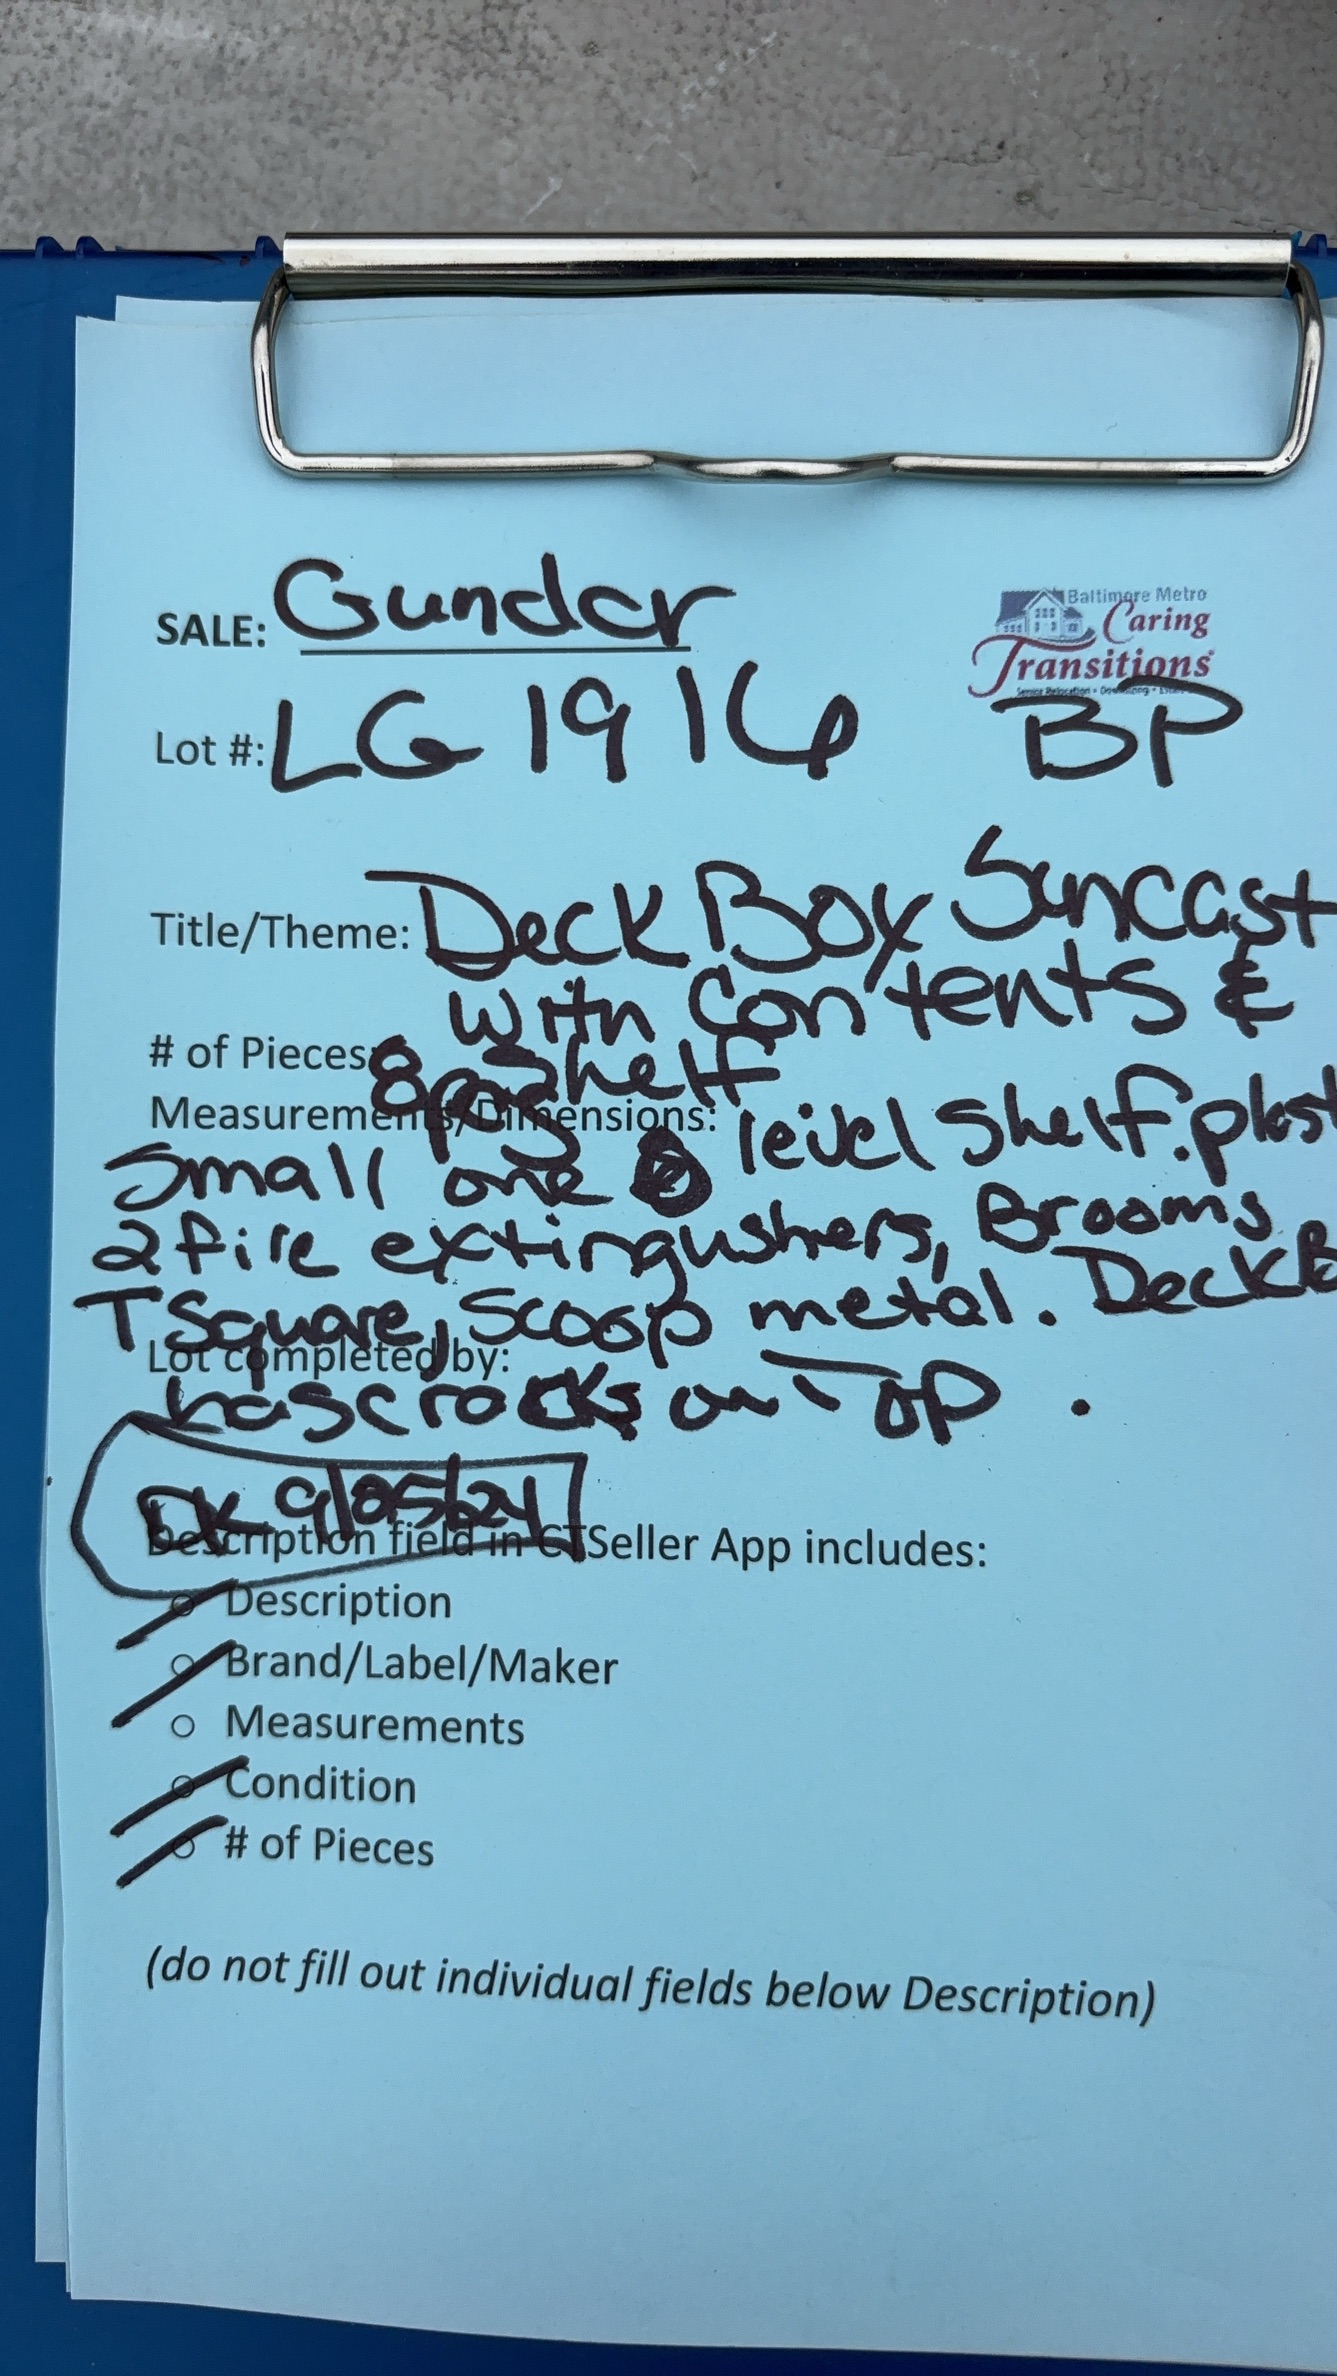 Baltimore Metro
Caring
Transitions
SALE: Gunder
Lot #: LG 1916 BP
Title/Theme: Deck Box Suncast
with Contents &
Shelf
# of Pieces: 8 pcs
Measurements/Dimensions:
Small one level Shelf. plast
2 fire extingushers, Brooms
T Square, Scoop metal. Deck B
Lot completed by:
has cracks on Top.
DK 9/25/24
Description field in CTSeller App includes:
Description
Brand/Label/Maker
Measurements
Condition
# of Pieces
(do not fill out individual fields below Description)